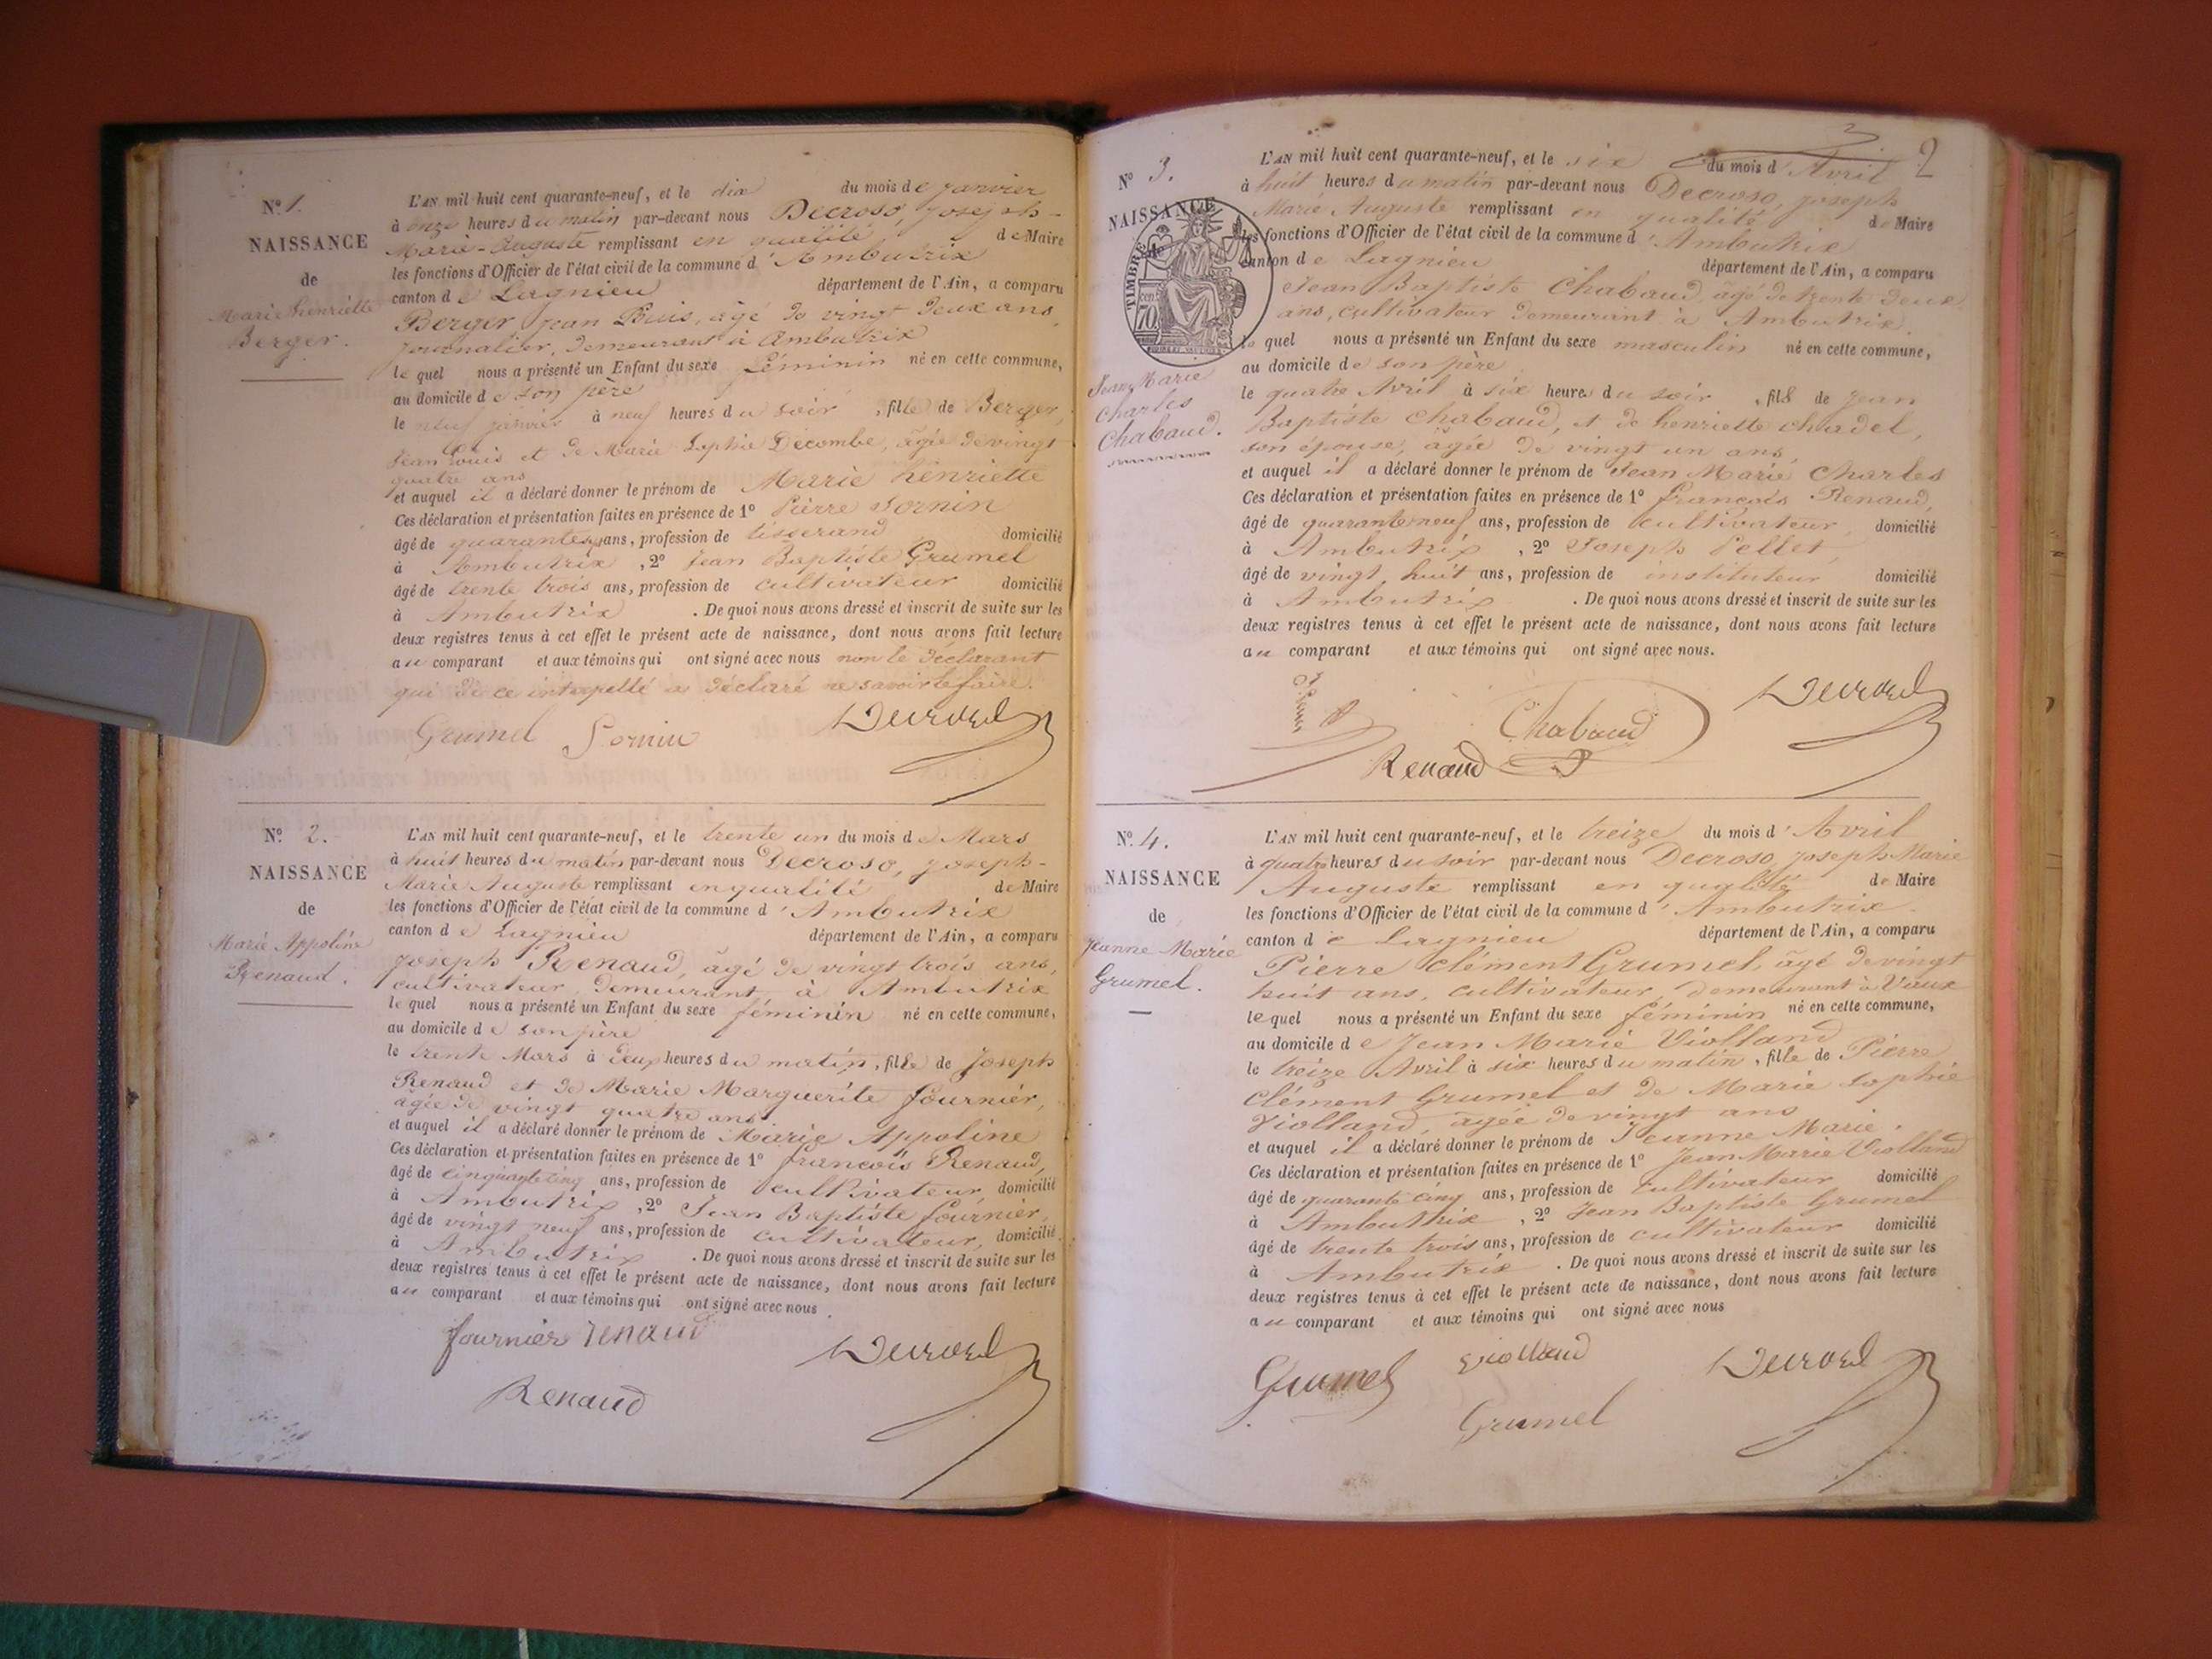 N.º 1.
NAISSANCE
de
Marie henriette
Berger.
L'AN mil huit cent quarante-neuf, et le dix du mois de janvier
à onze heures du matin par-devant nous Decroso, joseph-
Marie-Auguste remplissant en qualité de Maire
les fonctions d'Officier de l'état civil de la commune d'Ambutrix
canton de Lagnieu département de l'Ain, a comparu
Berger jean Louis, âgé de vingt deux ans,
journalier, demeurant à Ambutrix
lequel nous a présenté un Enfant du sexe féminin né en cette commune,
au domicile de son père
le neuf janvier à neuf heures du soir, fille de Berger,
jean Louis et de Marie Sophie Décombe, âgée de vingt
quatre ans
et auquel il a déclaré donner le prénom de Marie henriette
Ces déclaration et présentation faites en présence de 1º Pierre Sornin
âgé de quarante ans, profession de tisserand domicilié
à Ambutrix, 2º Jean Baptiste Grumel
âgé de trente trois ans, profession de cultivateur domicilié
à Ambutrix. De quoi nous avons dressé et inscrit de suite sur les
deux registres tenus à cet effet le présent acte de naissance, dont nous avons fait lecture
au comparant et aux témoins qui ont signé avec nous non le déclarant
qui de ce interpellé a déclaré ne savoir le faire.
Grumel Sornin
N.º 2.
NAISSANCE
de
Marie Appoline
Renaud.
L'AN mil huit cent quarante-neuf, et le trente un du mois de Mars
à huit heures du matin par-devant nous Decroso, joseph-
Marie Auguste remplissant en qualité de Maire
les fonctions d'Officier de l'état civil de la commune d'Ambutrix
canton de Lagnieu département de l'Ain, a comparu
joseph Renaud, âgé de vingt trois ans,
cultivateur, demeurant à Ambutrix
lequel nous a présenté un Enfant du sexe féminin né en cette commune,
au domicile de son père
le trente Mars à deux heures du matin, fille de Joseph
Renaud et de Marie Marguerite fournier,
âgée de vingt quatre ans
et auquel il a déclaré donner le prénom de Marie Appoline
Ces déclaration et présentation faites en présence de 1º françois Renaud,
âgé de cinquante cinq ans, profession de cultivateur, domicilié
à Ambutrix, 2º Jean Baptiste fournier,
âgé de vingt neuf ans, profession de cultivateur, domicilié
à Ambutrix. De quoi nous avons dressé et inscrit de suite sur les
deux registres tenus à cet effet le présent acte de naissance, dont nous avons fait lecture
au comparant et aux témoins qui ont signé avec nous.
fournier renaud
Renaud
2
N.º 3.
NAISSANCE
TIMBRE
cen.
70
Jean Marie
Charles
Chabaud.
L'AN mil huit cent quarante-neuf, et le six du mois d'Avril
à huit heures du matin par-devant nous Decroso, joseph
Marie Auguste remplissant en qualité de Maire
les fonctions d'Officier de l'état civil de la commune d'Ambutrix
canton de Lagnieu département de l'Ain, a comparu
Jean Baptiste Chabaud, âgé de trente deux
ans, cultivateur demeurant à Ambutrix.
lequel nous a présenté un Enfant du sexe masculin né en cette commune,
au domicile de son père
le quatre Avril à six heures du soir, fils de Jean
Baptiste Chabaud, et de henriette chadel,
son épouse, âgée de vingt un ans,
et auquel il a déclaré donner le prénom de Jean Marie Charles
Ces déclaration et présentation faites en présence de 1º françois Renaud,
âgé de quarante neuf ans, profession de cultivateur, domicilié
à Ambutrix, 2º Joseph Pellet,
âgé de vingt huit ans, profession de instituteur domicilié
à Ambutrix. De quoi nous avons dressé et inscrit de suite sur les
deux registres tenus à cet effet le présent acte de naissance, dont nous avons fait lecture
au comparant et aux témoins qui ont signé avec nous.
Chabaud
Renaud
N.º 4.
NAISSANCE
de
Jeanne Marie
Grumel.
L'AN mil huit cent quarante-neuf, et le treize du mois d'Avril
à quatre heures du soir par-devant nous Decroso, joseph Marie
Auguste remplissant en qualité de Maire
les fonctions d'Officier de l'état civil de la commune d'Ambutrix.
canton de Lagnieu département de l'Ain, a comparu
Pierre clément Grumel, âgé de vingt
huit ans, cultivateur, demeurant à Vaux
lequel nous a présenté un Enfant du sexe féminin né en cette commune,
au domicile de Jean Marie Violland
le treize Avril à six heures du matin, fille de Pierre
Clément Grumel et de Marie Sophie
Violland, âgée de vingt ans
et auquel il a déclaré donner le prénom de Jeanne Marie.
Ces déclaration et présentation faites en présence de 1º Jean Marie Violland
âgé de quarante cinq ans, profession de cultivateur domicilié
à Ambutrix, 2º Jean Baptiste Grumel
âgé de trente trois ans, profession de cultivateur domicilié
à Ambutrix. De quoi nous avons dressé et inscrit de suite sur les
deux registres tenus à cet effet le présent acte de naissance, dont nous avons fait lecture
au comparant et aux témoins qui ont signé avec nous
Grumel violland
Grumel